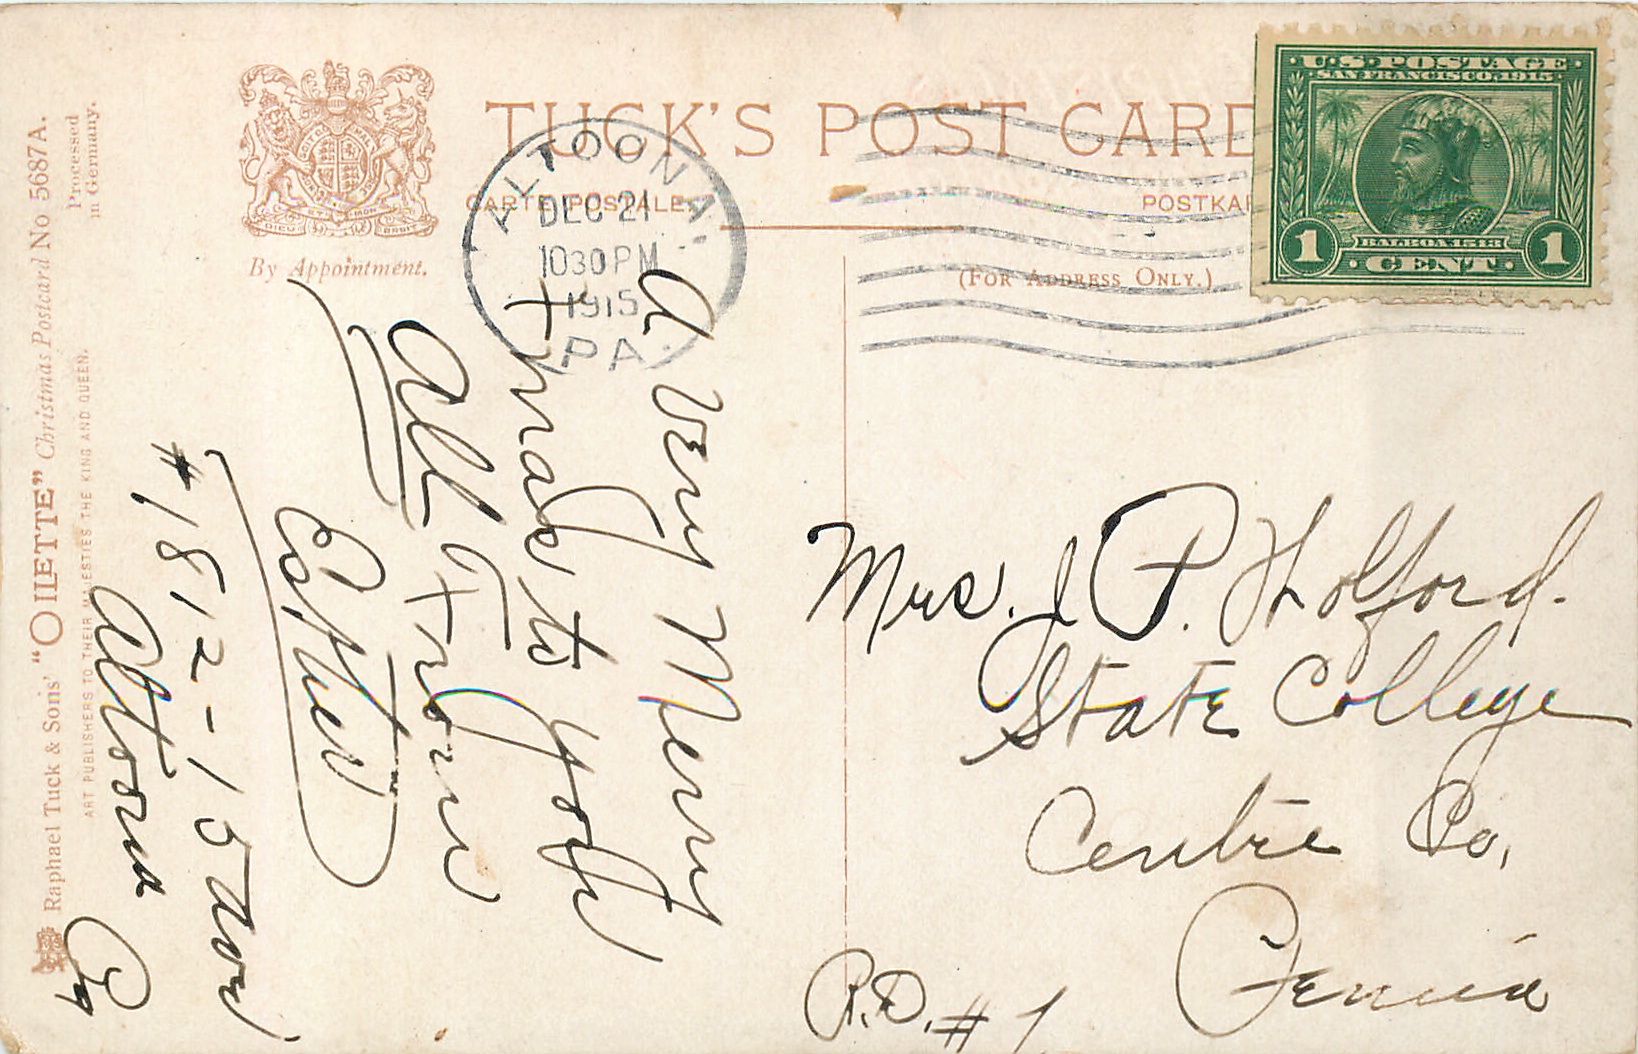 TUCK'S POST CARD
CARTE POSTALE.
POSTKAR
(FOR ADDRESS ONLY.)
By Appointment.
DIEU ET MON DROIT
ALTOONA,
DEC 21
1030 PM
1915
PA.
U.S. POSTAGE
SAN FRANCISCO 1915
BALBOA 1513
1 CENT 1
Raphael Tuck & Sons' "OILETTE" Christmas Postcard No 5687A.
ART PUBLISHERS TO THEIR MAJESTIES THE KING AND QUEEN.
Processed
in Germany.
A Very Merry
Xmas to you
All From
Esther
#1812-15 Ave
Altoona Pa
Mrs. J. P. Holford.
State College
Centre Co,
Penna
R.D. #1